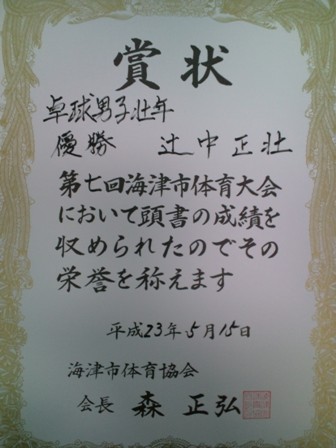 賞状
卓球男子壮年
優勝 辻中正壮
第七回海津市体育大会
において頭書の成績を
収められたのでその
栄誉を称えます
平成23年5月15日
海津市体育協会
会長 森 正弘